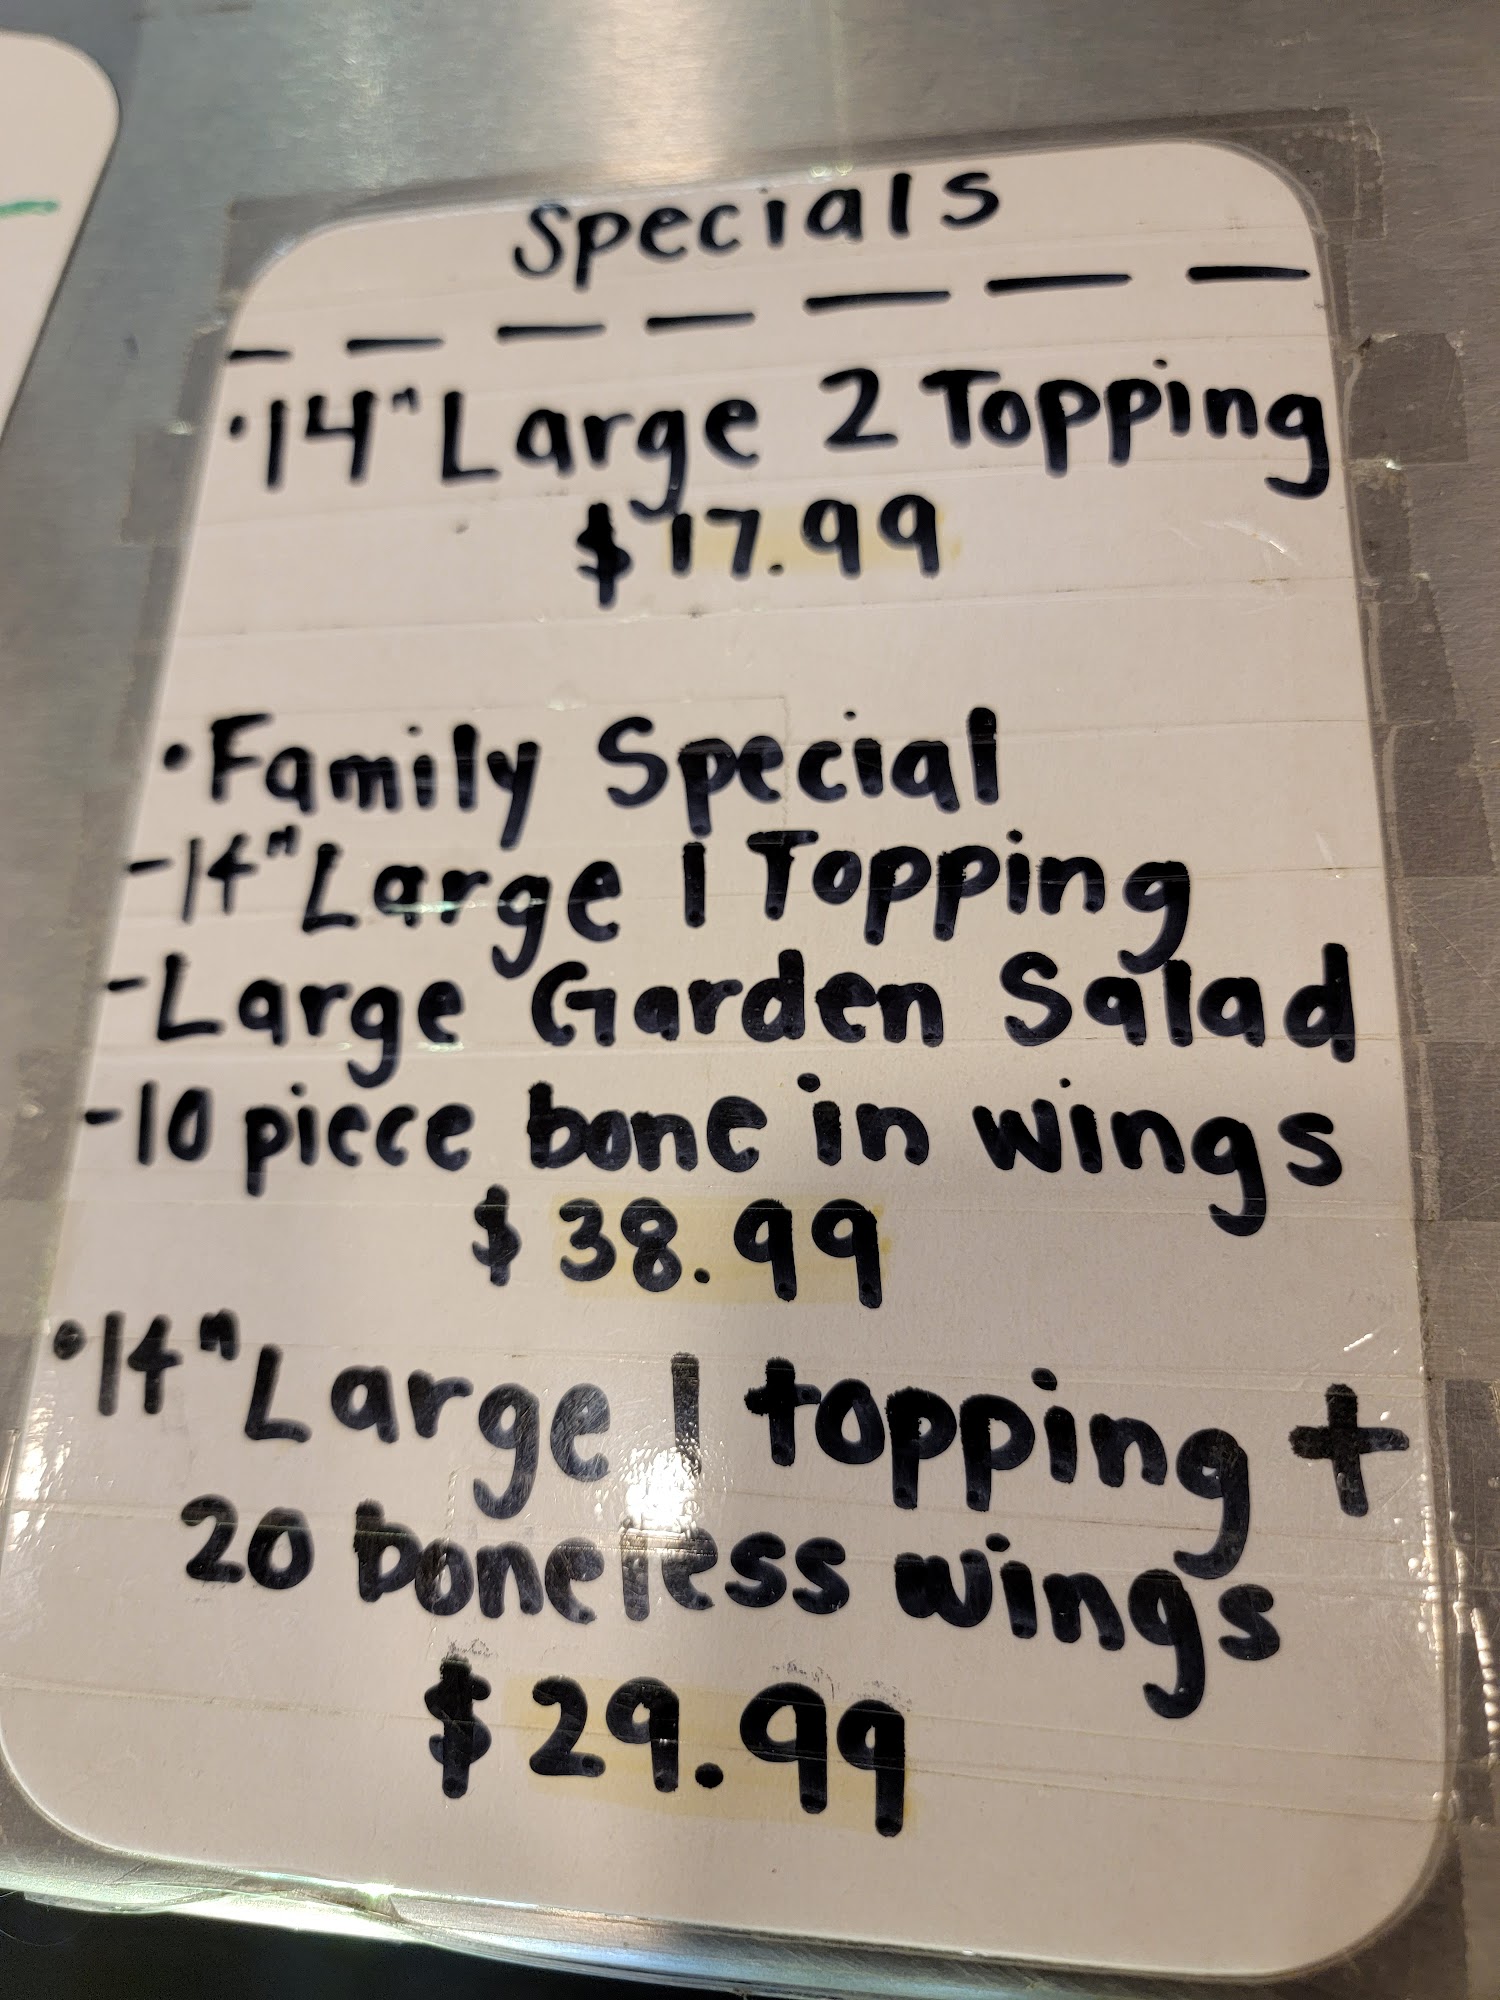 Specials
• 14" Large 2 Topping
$17.99
• Family Special
- 14" Large 1 Topping
- Large Garden Salad
- 10 piece bone in wings
$38.99
• 14" Large 1 topping +
20 boneless wings
$29.99